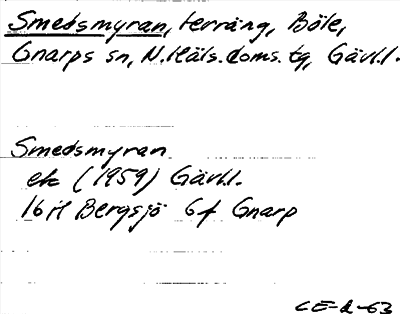 Smedsmyran, terräng, Böle,
Gnarps sn, N. Häls. doms. tg, Gävl.l.
Smedsmyran
ek (1959) Gävl.l.
16 il Bergsjö 6f Gnarp